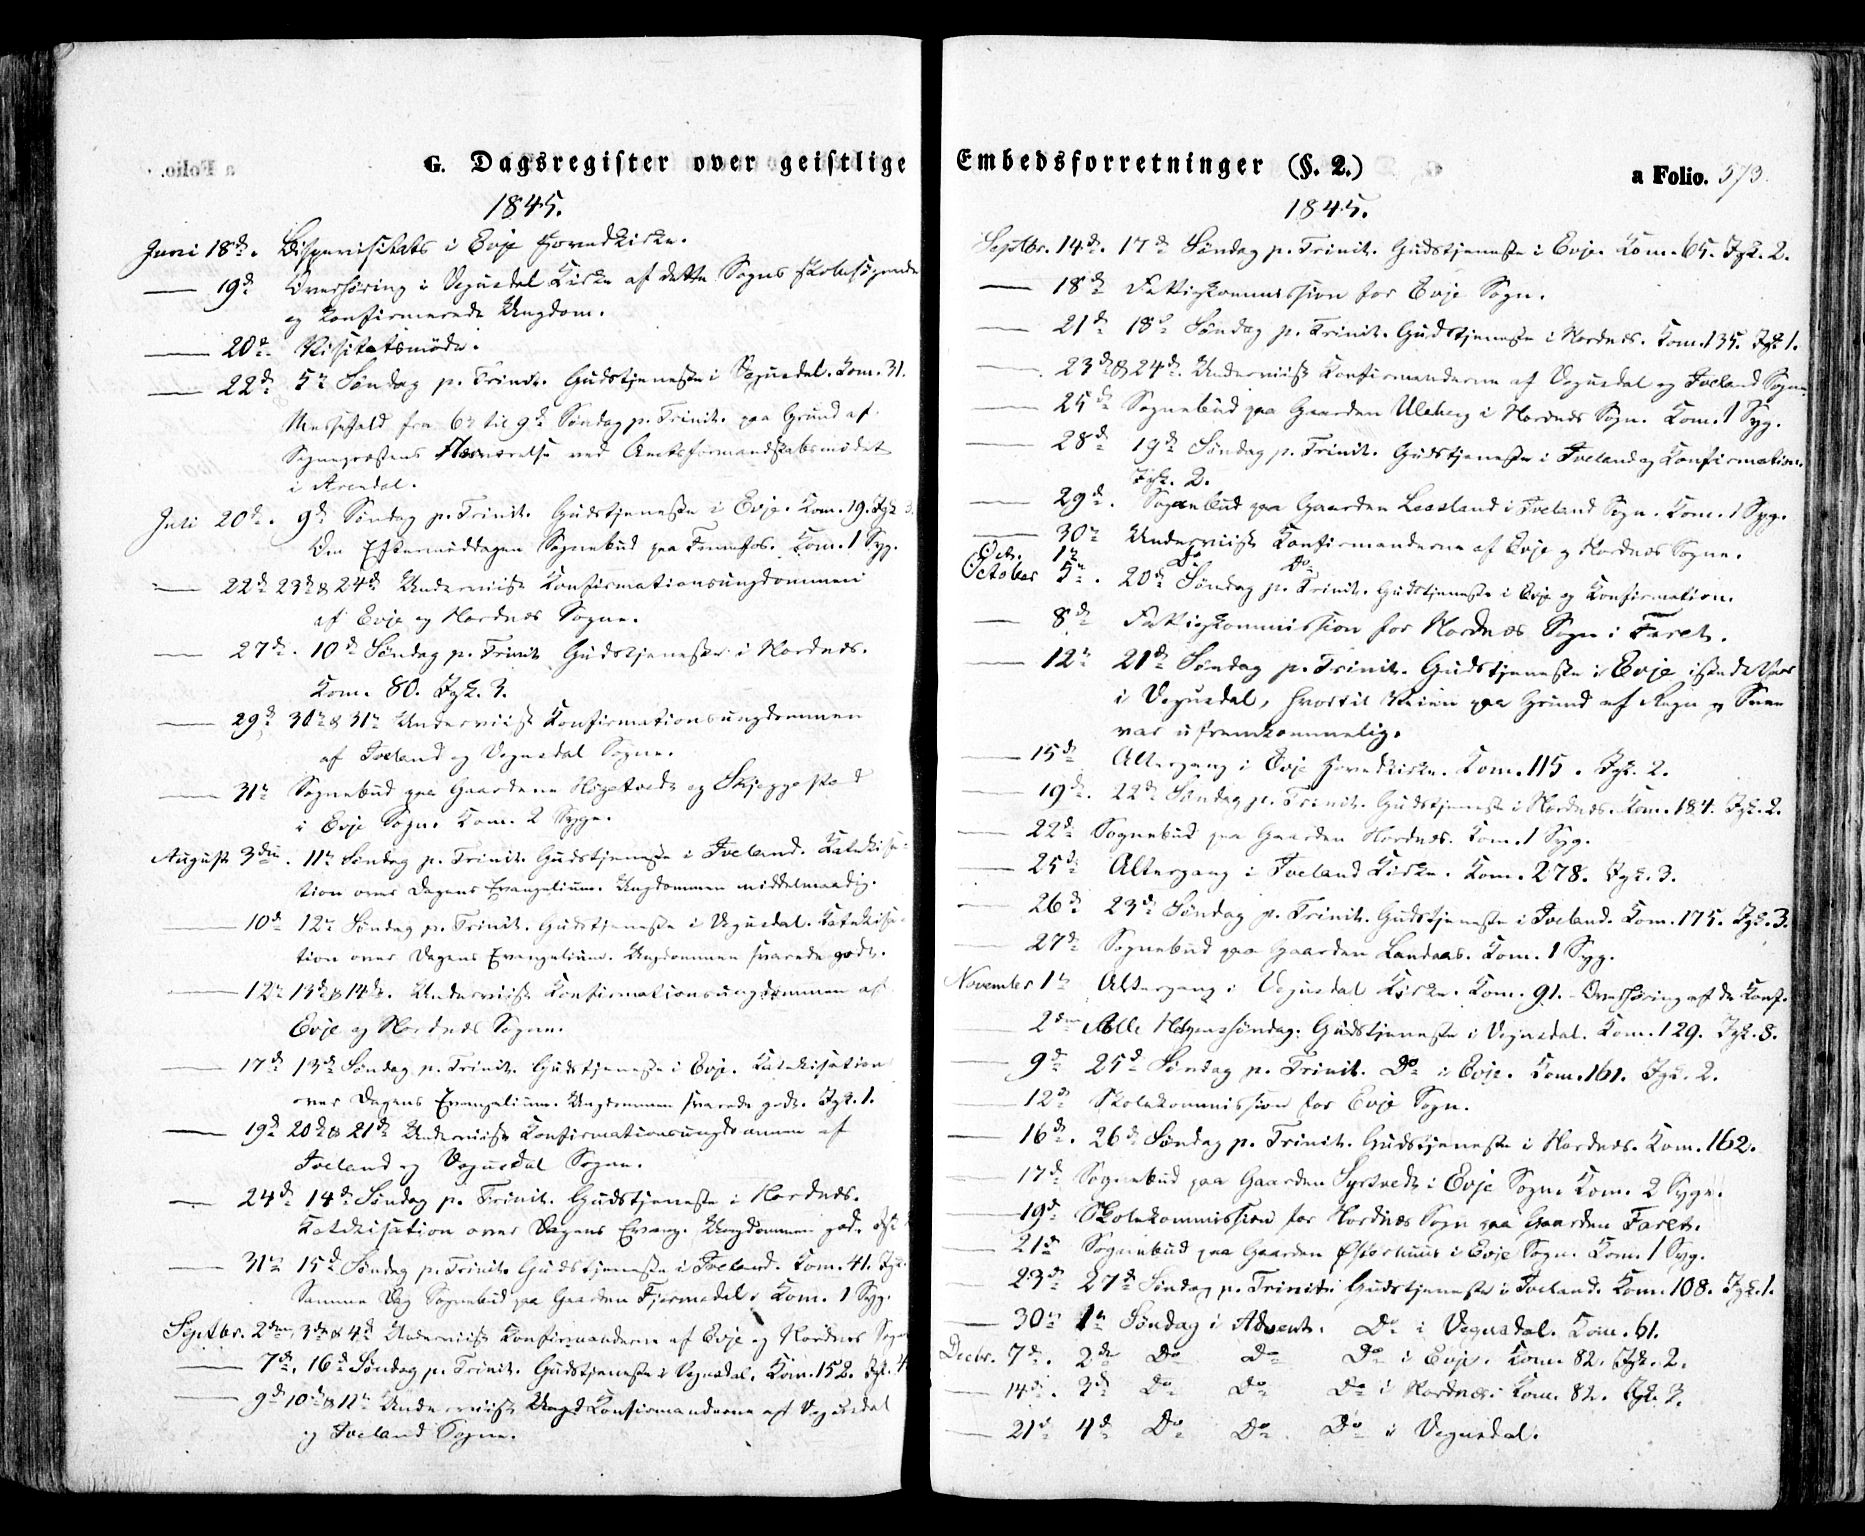 G. Dagsregister over geistlige
1845.
Juni 18de. Bispevisitats i Evje Hovedkirke.
— 19de Overhøring i Vegusdal Kirke af dette Sogns skolesøgende
og konfirmerede Ungdom.
— 20de. Visitatsmøde.
— 22de 5te Søndag p. Trinit. Gudstjeneste i Vegusdal. Kom. 31.
Messefald fra 6te til 9de Søndag p. Trinit. paa Grund af
Sognepræstens Nærværelse ved Amtsformandskabsmødet
i Arendal.
Juli 20de. 9de Søndag p. Trinit. Gudstjeneste i Evje. Kom. 19. Igt. 3.
Om Eftermiddagen Sognebud paa Fennefos. Kom. 1 Syg.
— 22de 23de & 24de Underviist Konfirmationsungdommen
af Evje og Hordnæs Sogne.
— 27de. 10de Søndag p. Trinit. Gudstjeneste i Hordnæs.
Kom. 80. Igt. 3.
— 29de 30te & 31te Underviist Konfirmationsungdommen
af Iveland og Vegusdal Sogne.
— 31te Sognebud paa Gaardene Høgetvedt og Skjeggestad
i Evje Sogn. Kom. 2 Syge.
August 3die. 11te Søndag p. Trinit. Gudstjeneste i Iveland. Katekisa-
tion over Dagens Evangelium. Ungdommen middelmaadig.
— 10de 12te Søndag p. Trinit. Gudstjeneste i Vegusdal. Katekisa-
tion over Dagens Evangelium. Ungdommen svarede godt.
— 12te 13de & 14de. Underviist Konfirmationsungdommen af
Evje og Hordnæs Sogne.
— 17de 13de Søndag p. Trinit. Gudstjeneste i Evje. Katekisation
over Dagens Evangelium. Ungdommen svarede godt. Igt. 1.
— 19de 20de & 21de Underviist Konfirmationsungdommen af
Iveland og Vegusdal Sogne.
— 24de 14de Søndag p. Trinit. Gudstjeneste i Hordnæs.
Katekisation over Dagens Evang. Ungdommen god.
— 31te 15de Søndag p. Trinit. Gudstjeneste i Iveland. Kom. 41. Igt.
Samme Dag Sognebud paa Gaarden Fjermedal. Kom. 1 Syg.
Septbr. 2den, 3die & 4de Underviist Konfirmanderne af Evje og Hordnæs Sogne
— 7de. 16de Søndag p. Trinit. Gudstjeneste i Vegusdal. Kom. 152. Igt. 4
— 9de 10de & 11te Underviist Konfirmanderne af Vegusdal
og Iveland Sogne.
Embedsforretninger (§. 2.)
a Folio. 573.
1845.
Septbr. 14de. 17de Søndag p. Trinit. Gudstjeneste i Evje. Kom. 65. Igt. 2.
— 18de Fattigkommission for Evje Sogn.
— 21de 18de Søndag p. Trinit. Gudstjeneste i Hordnæs. Kom. 135. Igt. 1.
— 23de & 24de. Underviist Konfirmanderne af Vegusdal og Iveland Sogne.
— 25de Sognebud paa Gaarden Uleberg i Hordnæs Sogn. Kom. 1 Syg.
— 28de 19de Søndag p. Trinit. Gudstjeneste i Iveland og Konfirmation.
Igt. 2.
— 29de. Sognebud paa Gaarden Leosland i Iveland Sogn. Kom. 1 Syg.
— 30te Underviist Konfirmanderne af Evje og Hordnæs Sogne.
Octr. 1te Do Do
October 5te. 20de Søndag p. Trinit. Gudstjeneste i Evje og Konfirmation.
— 8de Fattigkommission for Hordnæs Sogn i Faret.
— 12te 21de Søndag p. Trinit. Gudstjeneste i Evje istedetfor
i Vegusdal, hvortil Veien paa Grund af Regn og Snee
var ufremkommelig.
— 15de Altergang i Evje Hovedkirke. Kom. 115. Igt. 2.
— 19de. 22de Søndag p. Trinit. Gudstjeneste i Hordnæs. Kom. 184. Igt. 2.
— 22de Sognebud paa Gaarden Hordnæs. Kom. 1 Syg.
— 25de Altergang i Iveland Kirke. Kom. 278. Igt. 3.
— 26de 23de Søndag p. Trinit. Gudstjeneste i Iveland. Kom. 175. Igt. 3.
— 27de Sognebud paa Gaarden Landaas. Kom. 1 Syg.
November 1te Altergang i Vegusdal Kirke. Kom. 91. Overhøring af de Konf.
— 2den Alle Helgenssøndag. Gudstjeneste i Vegusdal. Kom. 129. Igt. 8.
— 9de 25de Søndag p. Trinit. Do i Evje. Kom. 161. Igt. 2.
— 12te Skolekommission for Evje Sogn.
— 16de. 26de Søndag p. Trinit. Gudstjeneste i Hordnæs. Kom. 162.
— 17de Sognebud paa Gaarden Syrtvedt i Evje Sogn. Kom. 2 Syge.
— 19de Skolekommission for Hordnæs Sogn paa Gaarden Faret.
— 21de Sognebud paa Gaarden Østerhuus i Evje Sogn. Kom. 1 Syg.
— 23de 27de Søndag p. Trinit. Gudstjeneste i Iveland. Kom. 108. Igt. 1.
— 30te 1te Søndag i Advent. Do i Vegusdal. Kom. 61.
Decbr. 7de. 2de Do Do Do i Evje. Kom. 82. Igt. 2.
— 14de. 3de Do Do Do i Hordnæs. Kom. 82. Igt. 3.
— 21de 4de Do Do Do i Vegusdal.